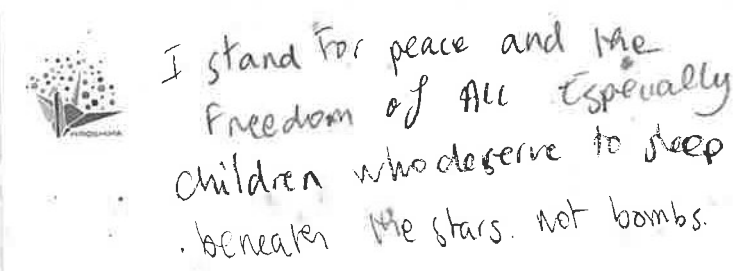 I stand for peace and the
Freedom of All Especially
children who deserve to sleep
beneath the stars. not bombs.
HIROSHIMA